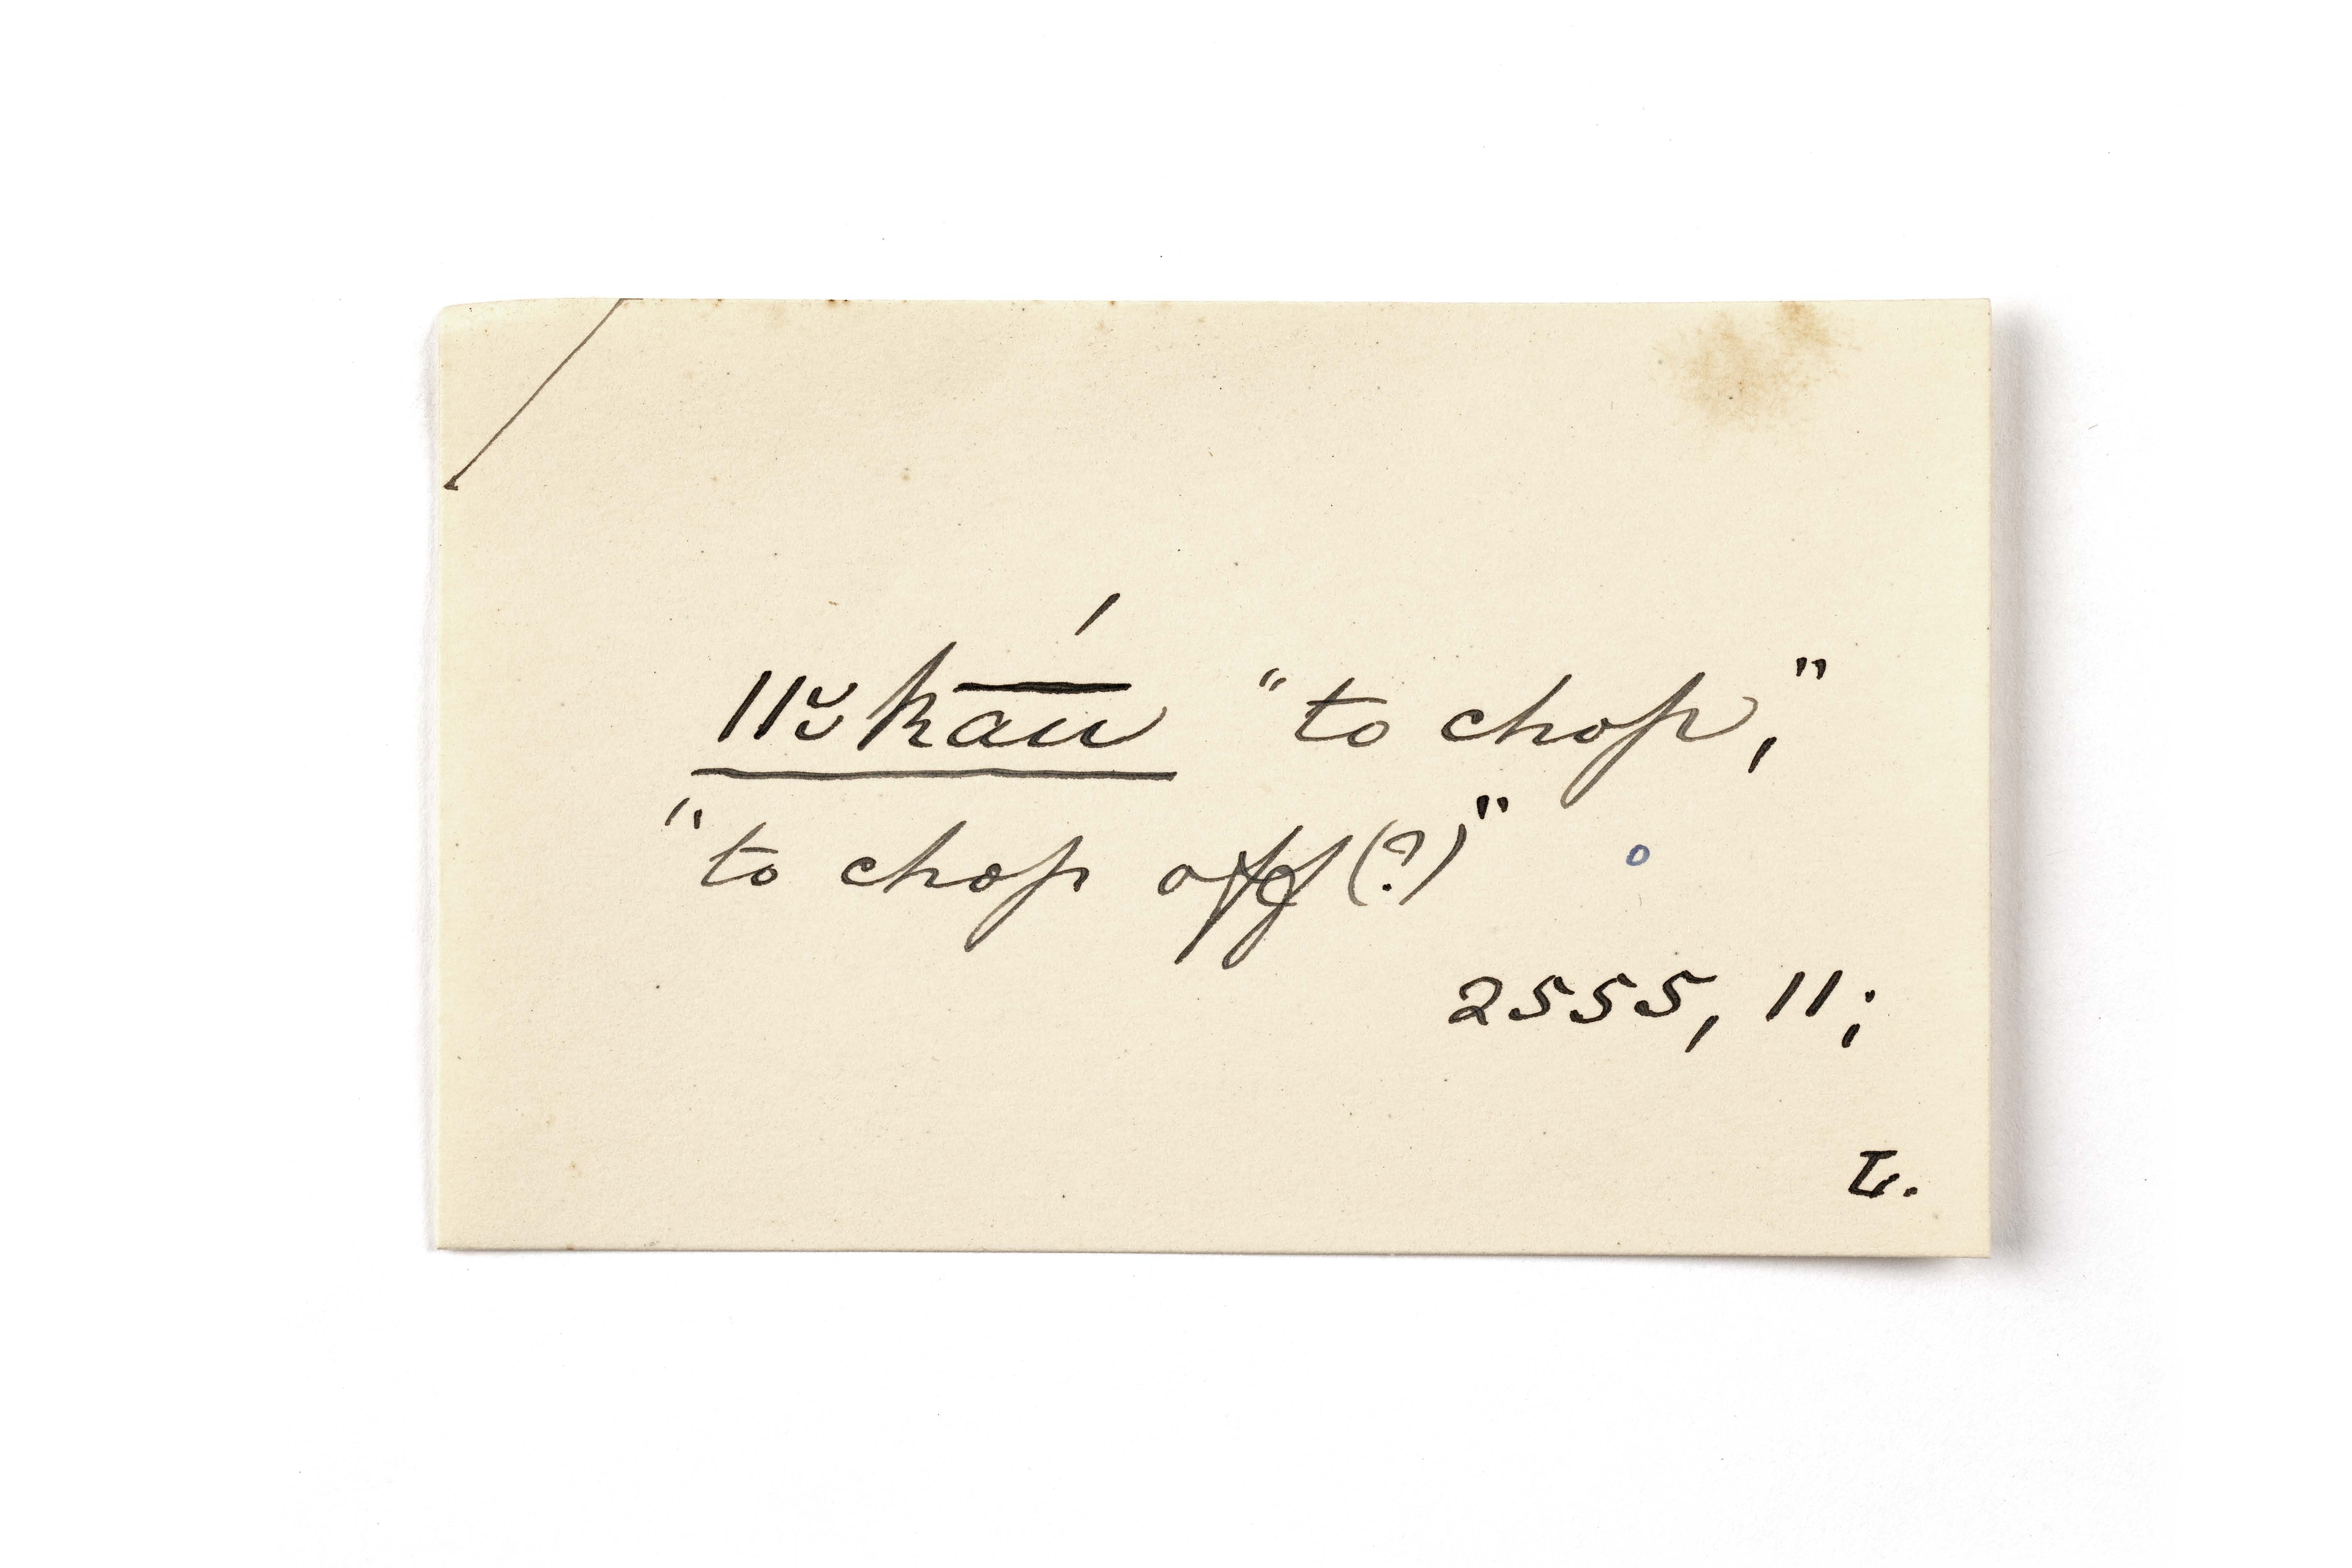 ǁ˘˘kāū́ "to chop,"
"to chop off(?)"
2555, 11;
L.